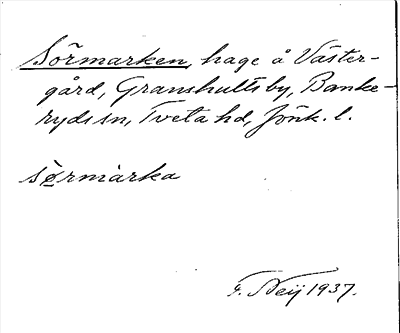 Sörmarken, hage å Väster-
gård, Granshults by, Banke-
ryds sn, Tveta hd, Jönk. l.
sö̀rmàrka
F. Neij 1937.